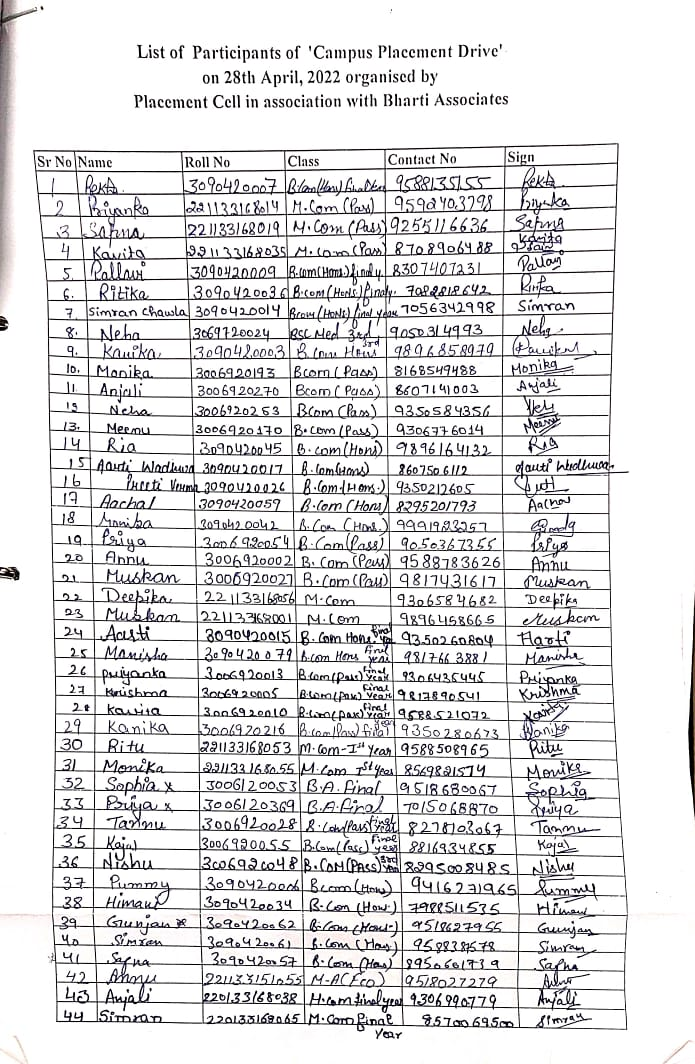 List of Participants of 'Campus Placement Drive'
on 28th April, 2022 organised by
Placement Cell in association with Bharti Associates
Sr No Name Roll No Class Contact No Sign
1 Rekha 3090420007 9588135155 Rekha
2 Priyanka 221133168014 M.Com (Pass) 9592403798 Priyanka
3 Sapna 221133168019 M.Com (Pass) 9255116636 Sapna
4 Kavita 221133168035 M.Com (Pass) 8708906488 Kavita
5. Pallavi 3090420009 B.com (Hons) final y. 8307407231 Pallavi
6. Ritika 3090420036 B.com (Hons) final y. 7082818642 Ritika
7. Simran Chawla 3090420014 Bcom (Hons) final year 7056342998 Simran
8. Neha 3069720024 BSC Med 3rd 9050314993 Neha
9. Kanika 3090420003 B.Com Hons 3rd 9896858979
10. Monika 3006920193 Bcom (Pass) 8168549488 Monika
11. Anjali 3006920270 Bcom (Pass) 8607141003 Anjali
12 Neha 3006920253 Bcom (Pass) 9350584356 Neha
13. Meenu 3006920170 B.com (Pass) 9306776014 Meenu
14 Ria 3090420045 B.com (Hons) 9896164132 Ria
15 Aarti Wadhwa 3090420017 B.Com (Hons) 8607506112 Aarti Wadhwa
16 Preeti Verma 3090420026 B.Com (Hons.) 9350212605
17 Aachal 3090420059 B.Com (Hons) 8295201793 Aachal
18 Manika 3090420042 B.Com (Hons.) 9991983257
19 Priya 3006920054 B.Com (Pass) 9050367355 Priya
20 Annu 3006920002 B.Com (Pass) 9588783626 Annu
21 Muskan 3006920027 B.Com (Pass) 9817431617 Muskan
22 Deepika 221133168056 M.Com 9306584682 Deepika
23 Muskan 221133168001 M.Com 9896458665 Muskan
24 Aarti 3090420015 B.Com Hons. final 9350260804 Aarti
25 Manisha 3090420079 B.com Hons final year 981766 3881 Manisha
26 Priyanka 3006920013 B.com (Pass) final year 9306435445 Priyanka
27 Krishma 3006920005 B.Com (Pass) final year 9817890541 Krishma
28 Kavita 3006920010 B.Com (Pass) year 9588521072 Kavita
29 Kanika 3006920216 B.com (Pass) final year 9350280673 Kanika
30 Ritu 221133168053 M.Com-Ist Year 9588508965 Ritu
31 Monika 221133168055 M.Com Ist year 8569821574 Monika
32 Sophia x 3006120053 B.A. final 9518680067 Sophia
33 Priya x 3006120369 B.A. final 7015068870 Priya
34 Tannu 3006920028 B.Com (Pass) final year 8278103067 Tannu
35 Kajal 3006920055 B.Com (Pass) final year 8816934855 Kajal
36 Nishu 3006920048 B.COM (PASS) 3rd year 8295008485 Nishu
37 Pummy 3090420006 Bcom (Hons) 9416271965 Pummy
38 Himani 3090420034 B.Com (Hons.) 7988511535 Himani
39 Gunjan 3090420062 B.Com (Hons.) 9518627955 Gunjan
40 Simran 3090420061 B.Com (Hons) 9588387578 Simran
41 Sapna 3090420057 B.Com (Hons) 8950601739 Sapna
42 Annu 221133151055 M-A (Eco) 9518027279
43 Anjali 220133168038 M.com final year 9306990779 Anjali
44 Simran 220133168065 M.Com final year 8570069500 Simran